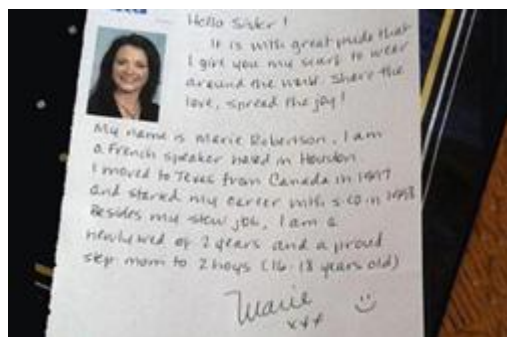 Hello Sister!
It is with great pride that
I give you my scarf to wear
around the world. Share the
love, spread the joy!
My name is Marie Robertson, I am
a French speaker based in Houston.
I moved to Texas from Canada in 1997
and started my career with s-co in 1998
Besides my stew job, I am a
newlywed of 2 years and a proud
step mom to 2 boys (16-18 years old)
Marie
xxx